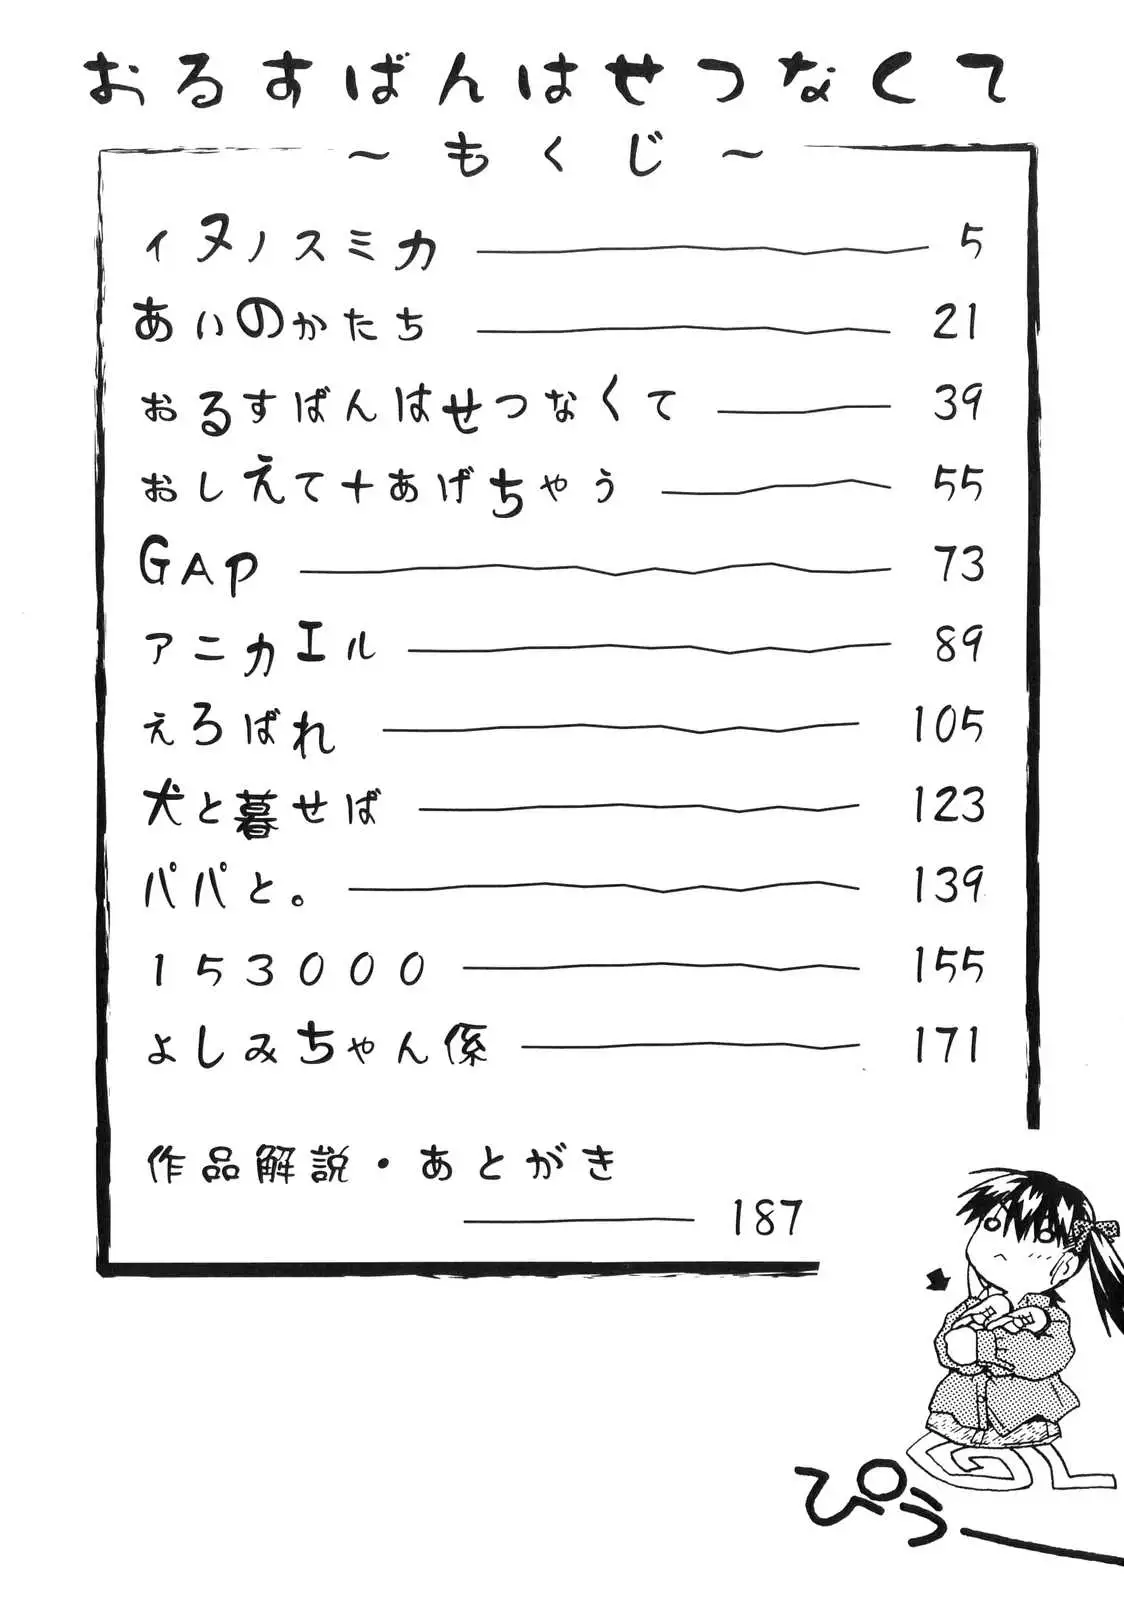 おるすばんはせつなくて
～もくじ～
イヌノスミカ 5
あいのかたち 21
おるすばんはせつなくて 39
おしえて＋あげちゃう 55
GAP 73
アニカエル 89
えろばれ 105
犬と暮せば 123
パパと。 139
153000 155
よしみちゃん係 171
作品解説・あとがき
187
ぴう